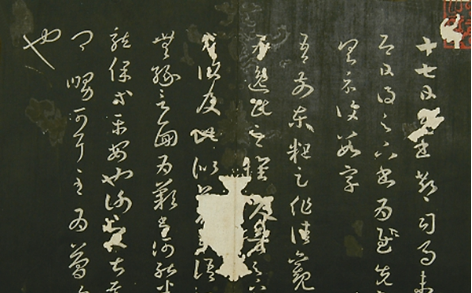 十七日先書郗司馬未
即日得足下書為慰先
具示復數字
吾前東粗足作佳觀
為逸民之懷久矣足
復及此似夢中語
無緣言面為歎書何能
龍保等平安也謝之甚
卿舅可耳至為簡
也